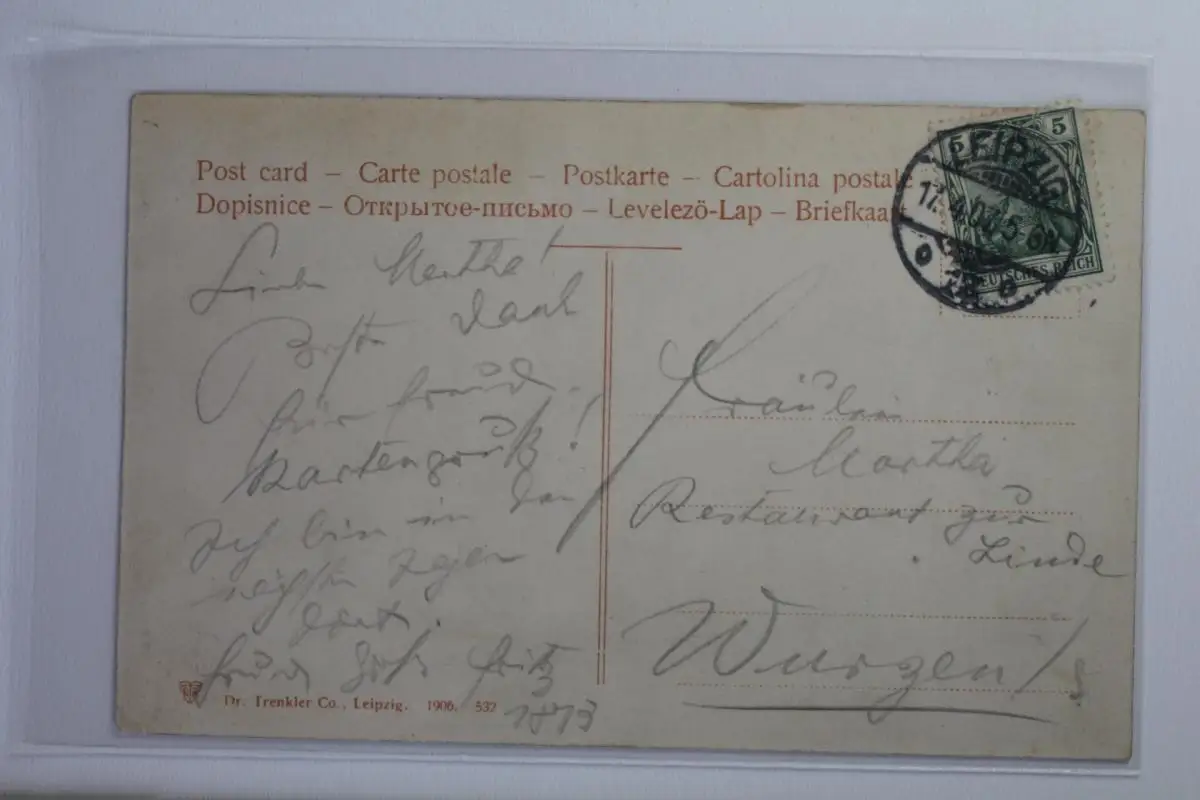 Post card – Carte postale – Postkarte – Cartolina postal
Dopisnice – Открытое-письмо – Levelező-Lap – Briefkaa
5 5
LEIPZIG
DEUTSCHES REICH
Liebe Martha!
Besten Dank
für freundl.
Kartengruß!
Ich bin in den
nächsten Tagen
dort.
Fritz
1873
Fräulein
Martha
Restaurant zur
Linde
Wurzen/S
Dr. Trenkler Co., Leipzig. 1906. 532